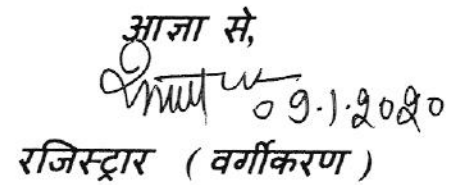 आज्ञा से,
09.1.2020
रजिस्ट्रार ( वर्गीकरण )